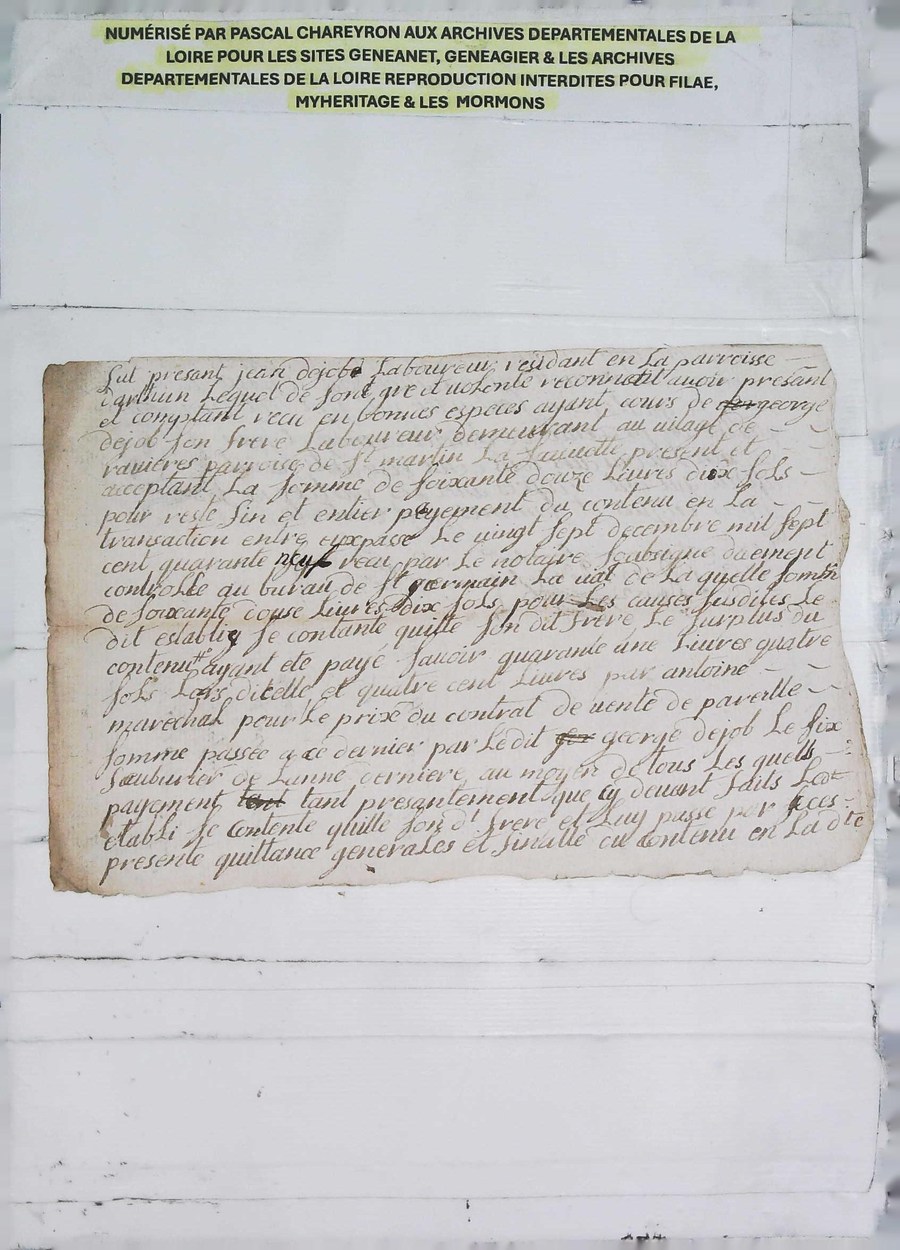 NUMÉRISÉ PAR PASCAL CHAREYRON AUX ARCHIVES DEPARTEMENTALES DE LA
LOIRE POUR LES SITES GENEANET, GENEAGIER & LES ARCHIVES
DEPARTEMENTALES DE LA LOIRE REPRODUCTION INTERDITES POUR FILAE,
MYHERITAGE & LES MORMONS
fut présant jean dejob Laboureur residant en La parroisse
d'arthun Lequel de son gré et volonté reconnait avoir présant
et comptant recu en bonnes especes ayant cours de george
dejob son frere Laboureur demeurant au vilage de
ravières parroise de St martin La sauvetté présent et
acceptant La somme de soixante douze Livres dix sols
pour reste fin et entier payement du contenu en La
transaction entre eux passé Le vingt sept decembre mil sept
cent quarante neuf recu par Le notaire soubsigné duement
controllée au bureau de St germain La val de La quelle somme
de soixante douse Livres dix sols pour Les causes susdites Le
dit establie se contante quitte son dit frere Le surplus du
contenu ayant eté payé savoir quarante une Livres quatre
sols Lors dicelle et quatre cent Livres par antoine
marechal pour Le prix du contrat de vente de pareille
somme passée a ce dernier par Ledit george dejob Le six
de Lanné derniere, au moyen de tous Les quells
payement tant presantement que cy devant faits Ledt
etabli se contente quitte son dt frere et Luy passe par ces
présente quittance generales et finalle du contenu en La dte